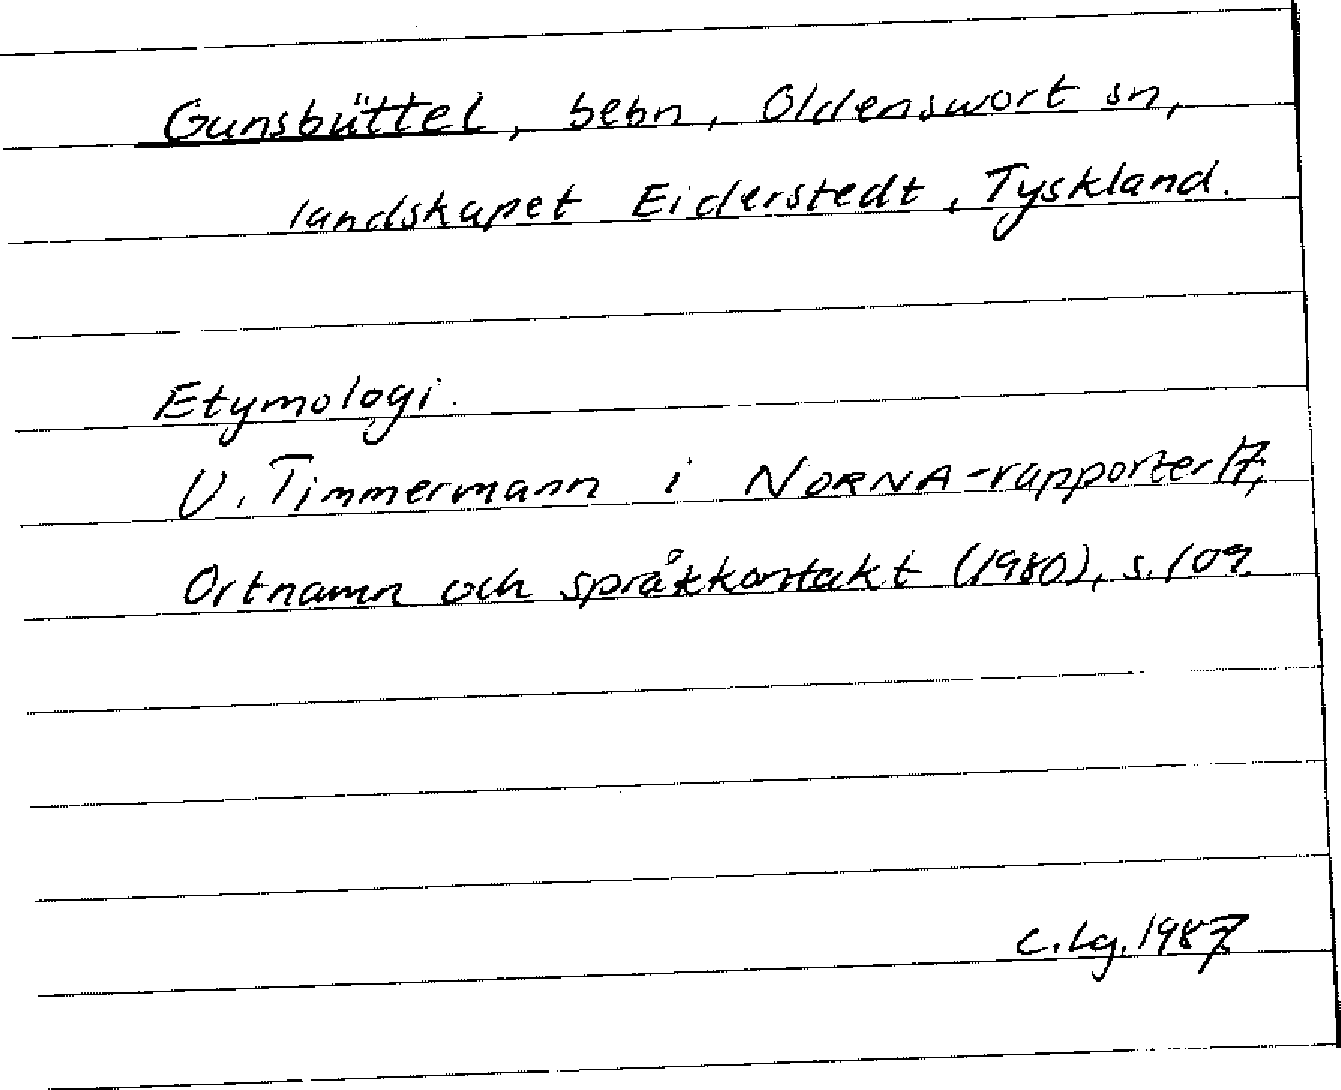 Gunsbüttel, bebn, Oldenswort sn,
landskapet Eiderstedt, Tyskland.
Etymologi.
U. Timmermann i NORNA-rapporter 17,
Ortnamn och språkkontakt (1980), s. 109.
C. Lg. 1987